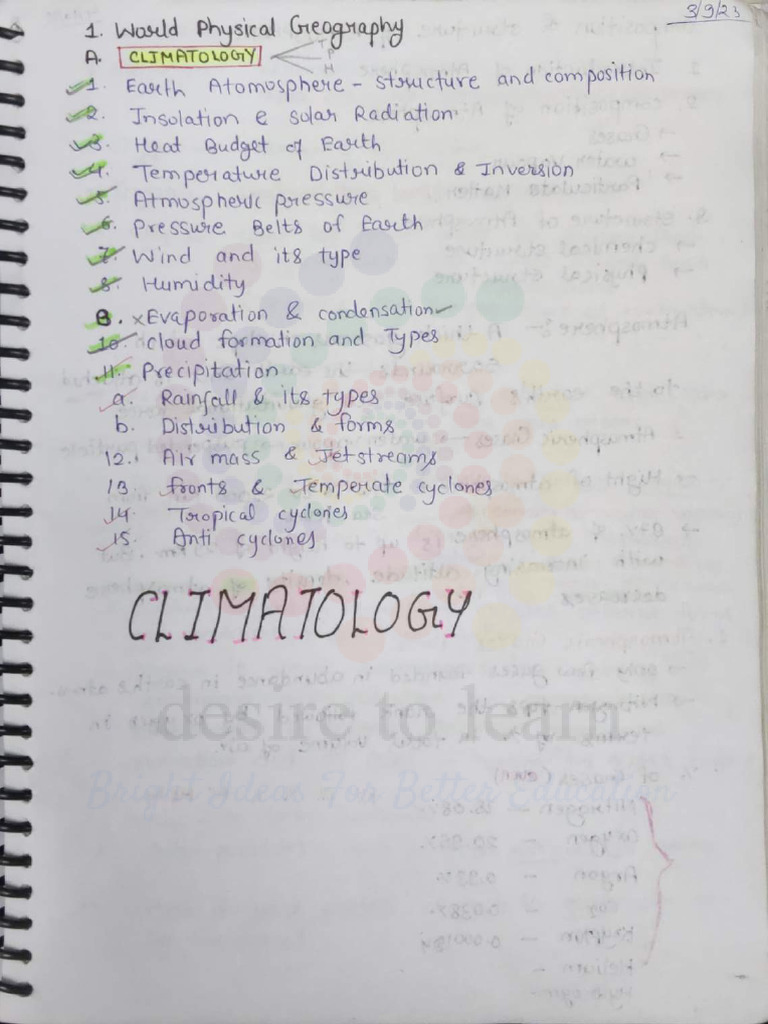 3/9/23
1. World Physical Geography
A. CLIMATOLOGY T P H
1. Earth Atomosphere - structure and composition
2. Insolation & solar Radiation
3. Heat Budget of Earth
4. Temperature Distribution & Inversion
5. Atmospheric pressure
6. Pressure Belts of Earth
7. Wind and its type
8. Humidity
9. x Evaporation & condensation
10. cloud formation and Types
11. Precipitation
a. Rainfall & its types
b. Distribution & forms
12. Air mass & Jet streams
13. fronts & Temperate cyclones
14. Tropical cyclones
15. Anti cyclones
CLIMATOLOGY
desire to learn
Bright Ideas For Better Education